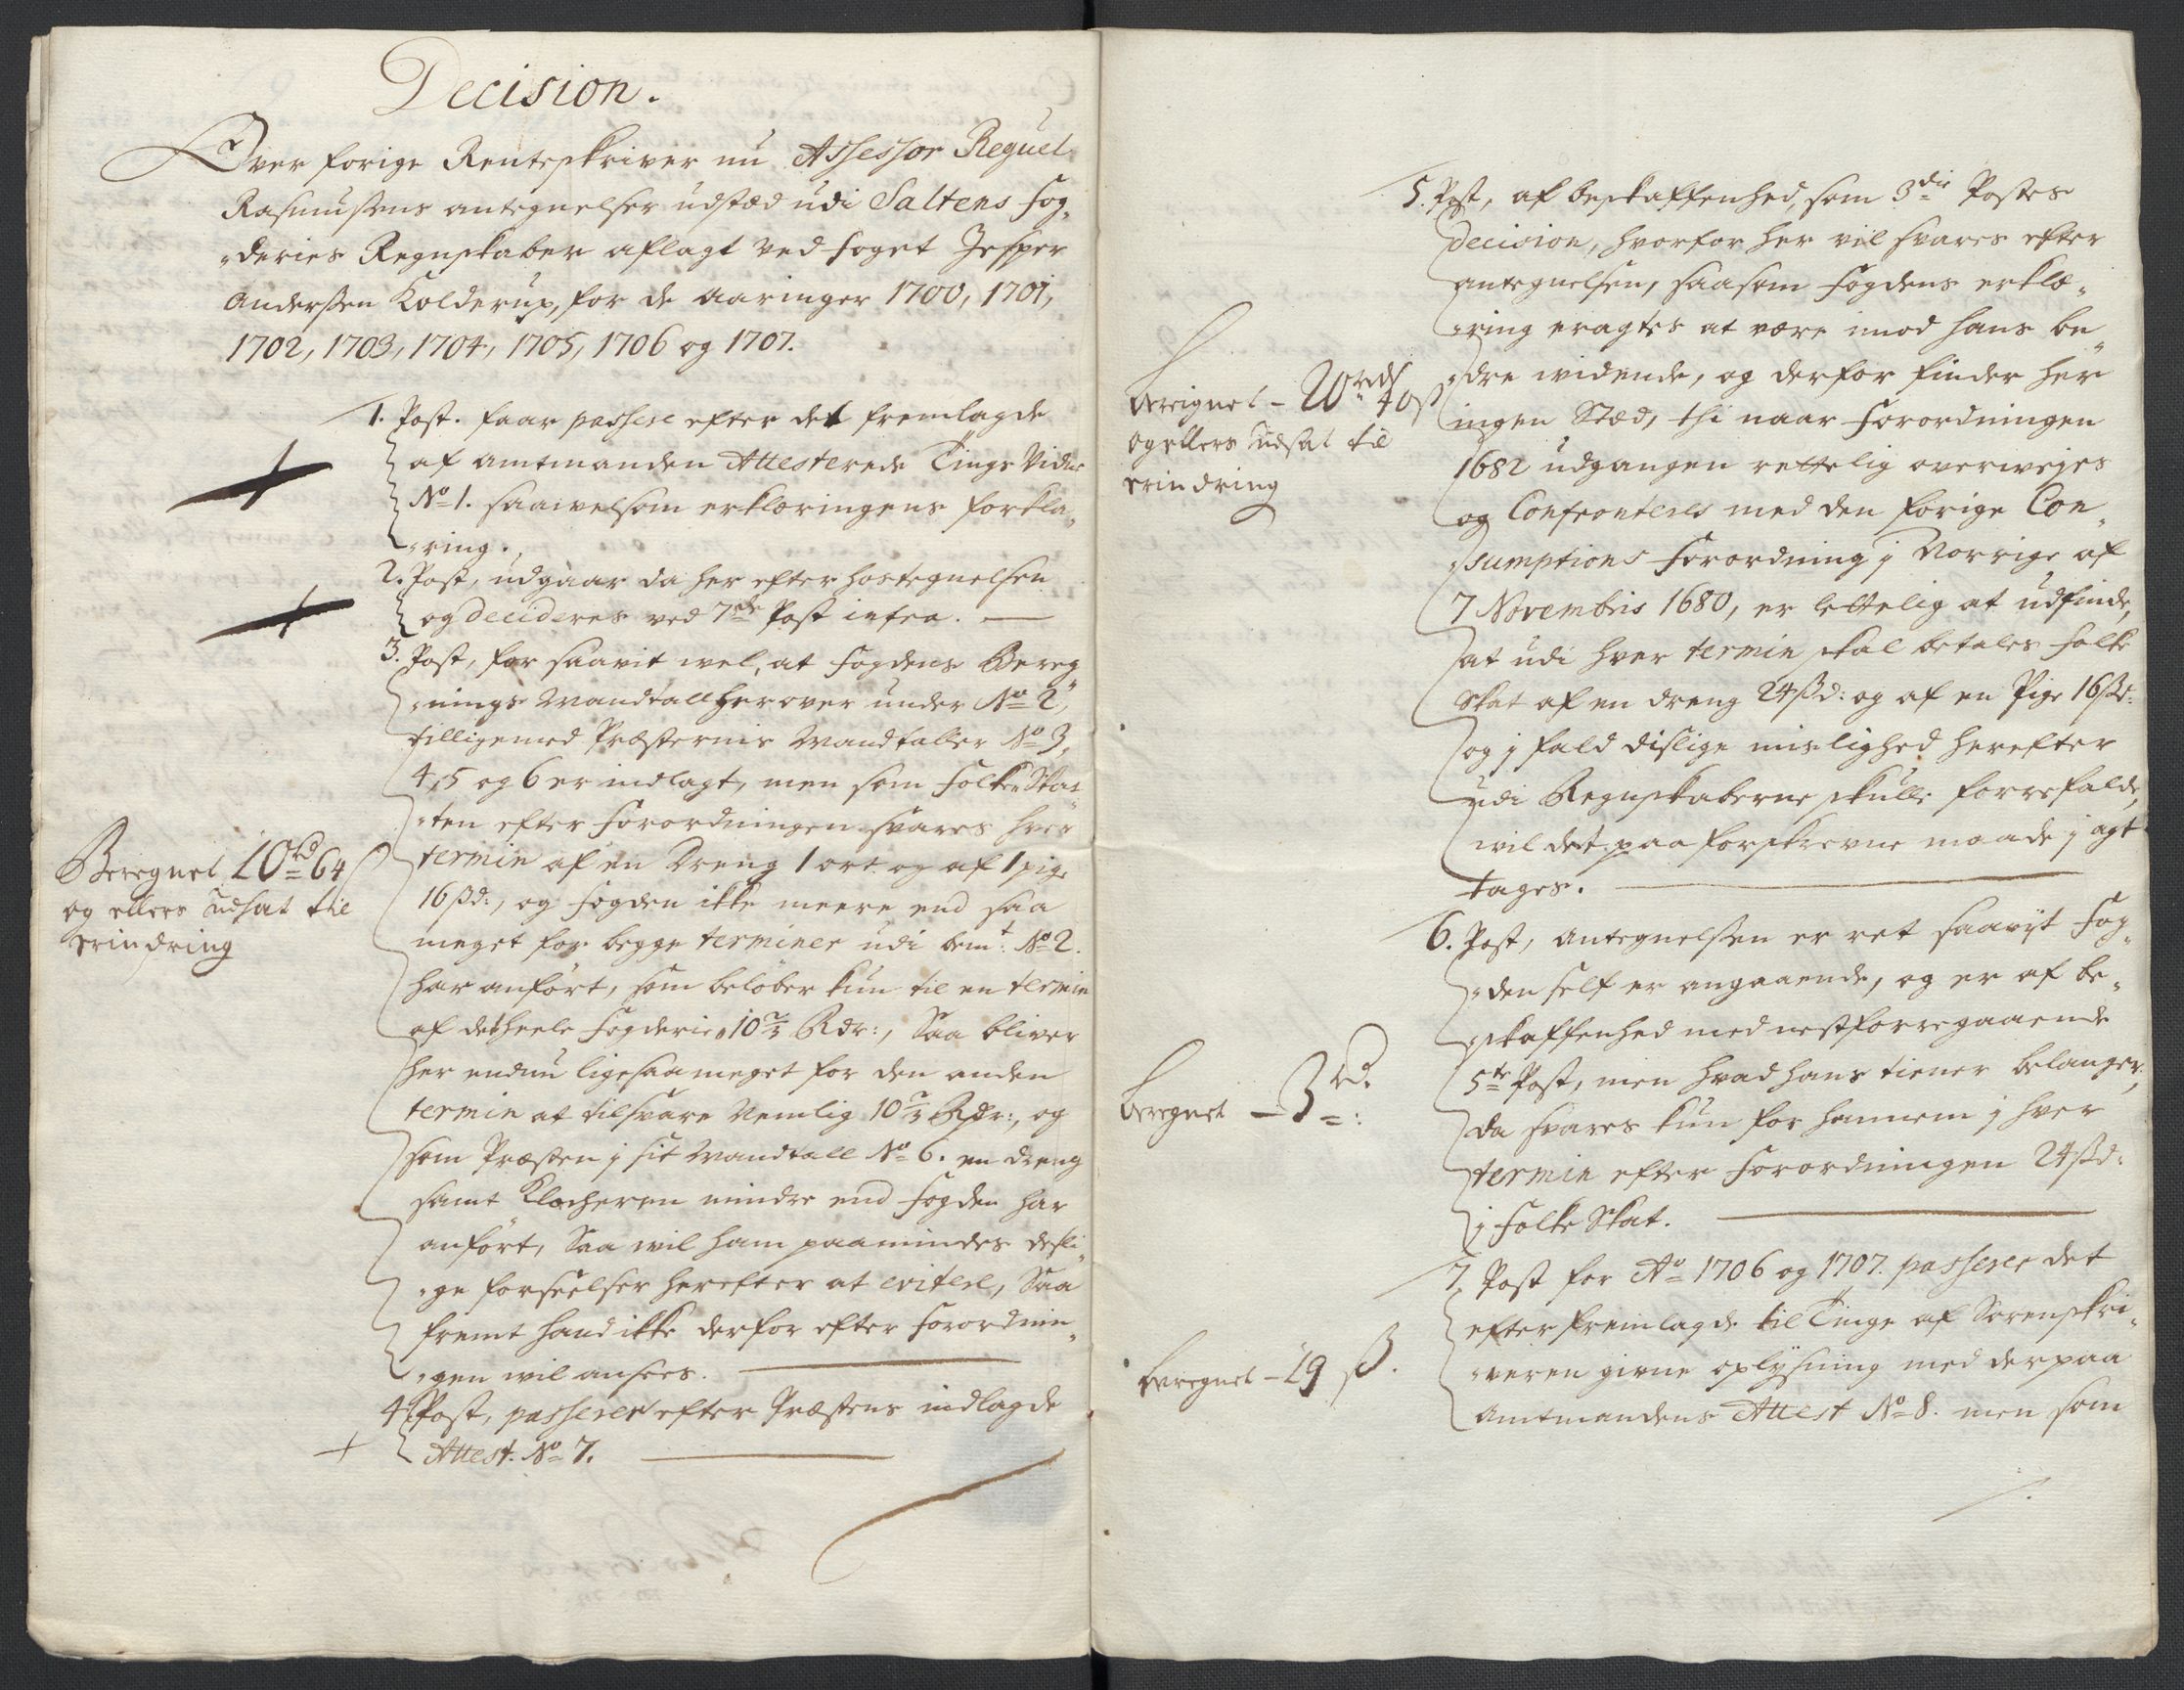 Decision.
Over forige Renteskriver nu Assessor Reguel
Rasmusens antegnelser udstæd udi Saltens fog,
„deries Regnskaber aflagt ved foget Jesper
Anderssen Kolderup, for de aaringer 1700, 1701,
1702, 1703, 1704, 1705, 1706 og 1707.
1. Post. faar passere efter det fremlagde
af amtmanden Attesterede Tings Vidne
No 1. saavelsom erklæringens forkla„
„ring.
2. Post, udgaar da her efter hostegnelsen
og decideres ved 7de Post infra.
3. Post, for saavit vel, at fogdens Bereg„
„nings Mandtall herover under No 2,
tilligemed Præsternis Mandtaller No 3,
4, 5 og 6 er indlagt, men som folke Skat„
„ten efter forordningen svares hver
termin af en Dreng 1 ort og af 1 pige
16 ß d:, og fogden ikke meere end saa
Beregnet 10 rd 64 ß
og ellers udsat til
erindring
meget for begge terminer udi bemt: No 2.
har anført, som beløber kun til en termin
af det heele fogderie 10 2/3 Rdr:, Saa bliver
her endnu ligesaa meget for den anden
termin at tilsvare Nemlig 10 2/3 Rdr:, og
som Præsten j sit Mandtall No 6. en dreng
samt Klocheren mindre end fogden har
anført, Saa vil ham paamindes desli„
„ge forseelser herefter at evitere, Saa
fremt hand ikke derfor efter forordnin„
„gen vil ansees.
4. Post, passerer efter Præstens indlagde
Attest. No 7.
5. Post, af beskaffenhed, som 3die Postes
Decision, hvorfor her vil svares efter
antegnelsen, saasom fogdens erklæ„
„ring eragtes at være imod hans be„
„dre vidende, og derfor finder her
beregnet - 20 rdr 40 ß
og ellers udsat til
erindring
ingen Stæd, thi naar forordningen
1682 udgangen rettelig overvejes
og Confronteres med den forige Con„
„sumptions forordning j Norrige af
7 Novembris 1680, er lettelig at udfinde,
at udi hver termin skal betales folke
Skat af en dreng 24 ß d: og af en Pige 16 ß d:
og j fald dislige mislighed herefter
udi Regnskaberne skulle forrefalde,
vil det paa forskrevne maade j agt
tages.
6. Post, Antegnelsen er ret saavit fog„
„den self er angaaende, og er af be„
„skaffenhed med nestforregaaende
5te Post, men hvad hans tiener belanger,
beregnet - 3 rd:
da svares kun for hannem j hver
termin efter forordningen 24 ß d:
j folke Skat.
7. Post for Ao 1706 og 1707. passerer det
efter fremlagde til Tinge af Sorenskri„
„veren givne oplysning med derpaa
beregnet - 29 ß.
Amtmandens Attest No 8. men som